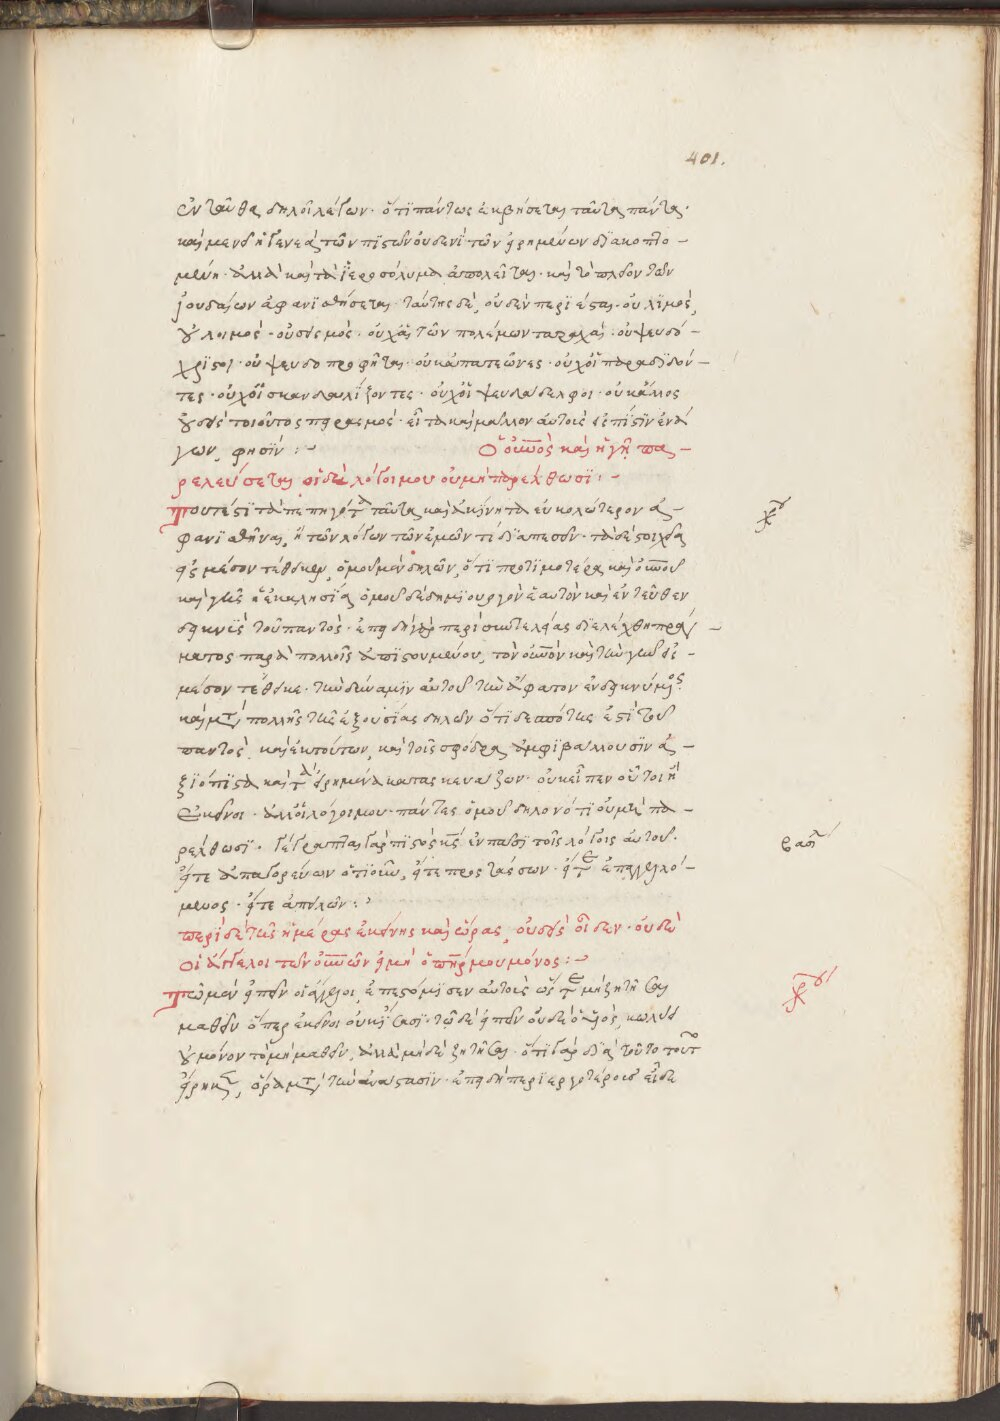 401.
ἐνταῦθα δηλοῖ λέγων· ὅτι πάντως ἐκβήσεται ταῦτα πάντα·
καὶ μενεῖ ἡ γενεὰ τῶν πιστῶν οὐδενὶ τῶν εἰρημένων διακοπτο-
μένη· ἀλλὰ καὶ τὰ ἱεροσόλυμα ἀπολεῖται· καὶ τὸ πλέον τῶν
ἰουδαίων ἀφανισθήσεται· ταύτης δὲ, οὐδὲν περιέσται· οὐ λιμὸς,
οὐ λοιμὸς· οὐ σεισμὸς· οὐχ αἱ τῶν πολέμων ταραχαὶ· οὐ ψευδό-
χριστοι· οὐ ψευδοπροφῆται· οὐκ ἀπατεῶνες· οὐχ οἱ παραδιδόν-
τες· οὐχ οἱ σκανδαλίζοντες· οὐχ οἱ ψευδάδελφοι· οὐκ ἄλλος
οὐδεὶς τοιοῦτος πειρασμός· εἶτα καὶ μᾶλλον αὐτοὺς εἰς πίστιν ἐνά
γων, φησίν: ~ Ὁ οὐνὸς καὶ ἡ γῆ πα-
ρελεύσεται, οἱ δὲ λόγοι μου οὐ μὴ παρέλθωσι: ~
Τουτέστι τὰ πεπηγότα ταῦτα καὶ ἀκίνητα εὐκολώτερον ἀ-
φανισθῆναι, ἢ τῶν λόγων τῶν ἐμῶν τί διαπεσεῖν· τὰ δὲ στοιχεῖα
εἰς μέσον τέθεικεν, ὁμοῦ μὲν δηλῶν, ὅτι προτιμοτέρα καὶ οὐνοῦ
καὶ γῆς ἡ ἐκκλησία ὁμοῦ δὲ δημιουργὸν ἑαυτὸν καὶ ἐντεῦθεν
δεικνὺς τοῦ παντὸς· ἐπειδὴ γὰρ περὶ συντελείας διελέχθη πρά-
γματος παρὰ πολλοῖς ἀπιστουμένου, τὸν οὐνὸν καὶ τὴν γῆν εἰς
μέσον τέθεικε· τὴν δύναμιν αὐτοῦ τὴν ἄφατον ἐνδεικνύμενος·
καὶ μετὰ πολλῆς τῆς ἐξουσίας δηλῶν ὅτι δεσπότης ἐστὶ τοῦ
παντὸς, καὶ ἐκ τούτων, καὶ τοῖς σφόδρα ἀμφιβάλλουσιν ἀ-
ξιόπιστα καὶ τὰ εἰρημένα κατασκευάζων· οὐκ εἶπεν οὗτοι ἢ
ἐκεῖνοι· ἀλλ' οἱ λόγοι μου· πάντες ὁμοῦ δηλονότι οὐ μὴ πα-
ρέλθωσι· γέγραπται γὰρ πιστὸς κς ἐν πᾶσι τοῖς λόγοις αὐτοῦ·
εἴτε ἀπαγορεύων ὁτιοῦν, εἴτε προστάσσων· εἴτε ἐπαγγελλό-
μενος· εἴτε ἀπειλῶν: ~
περὶ δὲ τῆς ἡμέρας ἐκείνης καὶ ὥρας, οὐδεὶς οἶδεν· οὐδὲ
οἱ ἄγγελοι τῶν οὐνῶν εἰ μὴ ὁ πηρ μου μόνος: ~
Τῶ μὲν εἰπεῖν οἱ ἄγγελοι, ἐπεστόμισεν αὐτοὺς ὥστε μὴ ζητῆσαι
μαθεῖν ὅπερ ἐκεῖνοι οὐκ ἴσασι· τῶ δὲ εἰπεῖν οὐδὲ ὁ υἱὸς, κωλύει
οὐ μόνον τὸ μὴ μαθεῖν, ἀλλὰ μηδὲ ζητῆσαι· ὅτι γὰρ διὰ τοῦτο τοῦτ
εἴρηκεν, ὅρα μετὰ τὴν ἀνάστασιν· ἐπειδὴ περιεργοτέρους εἶδε